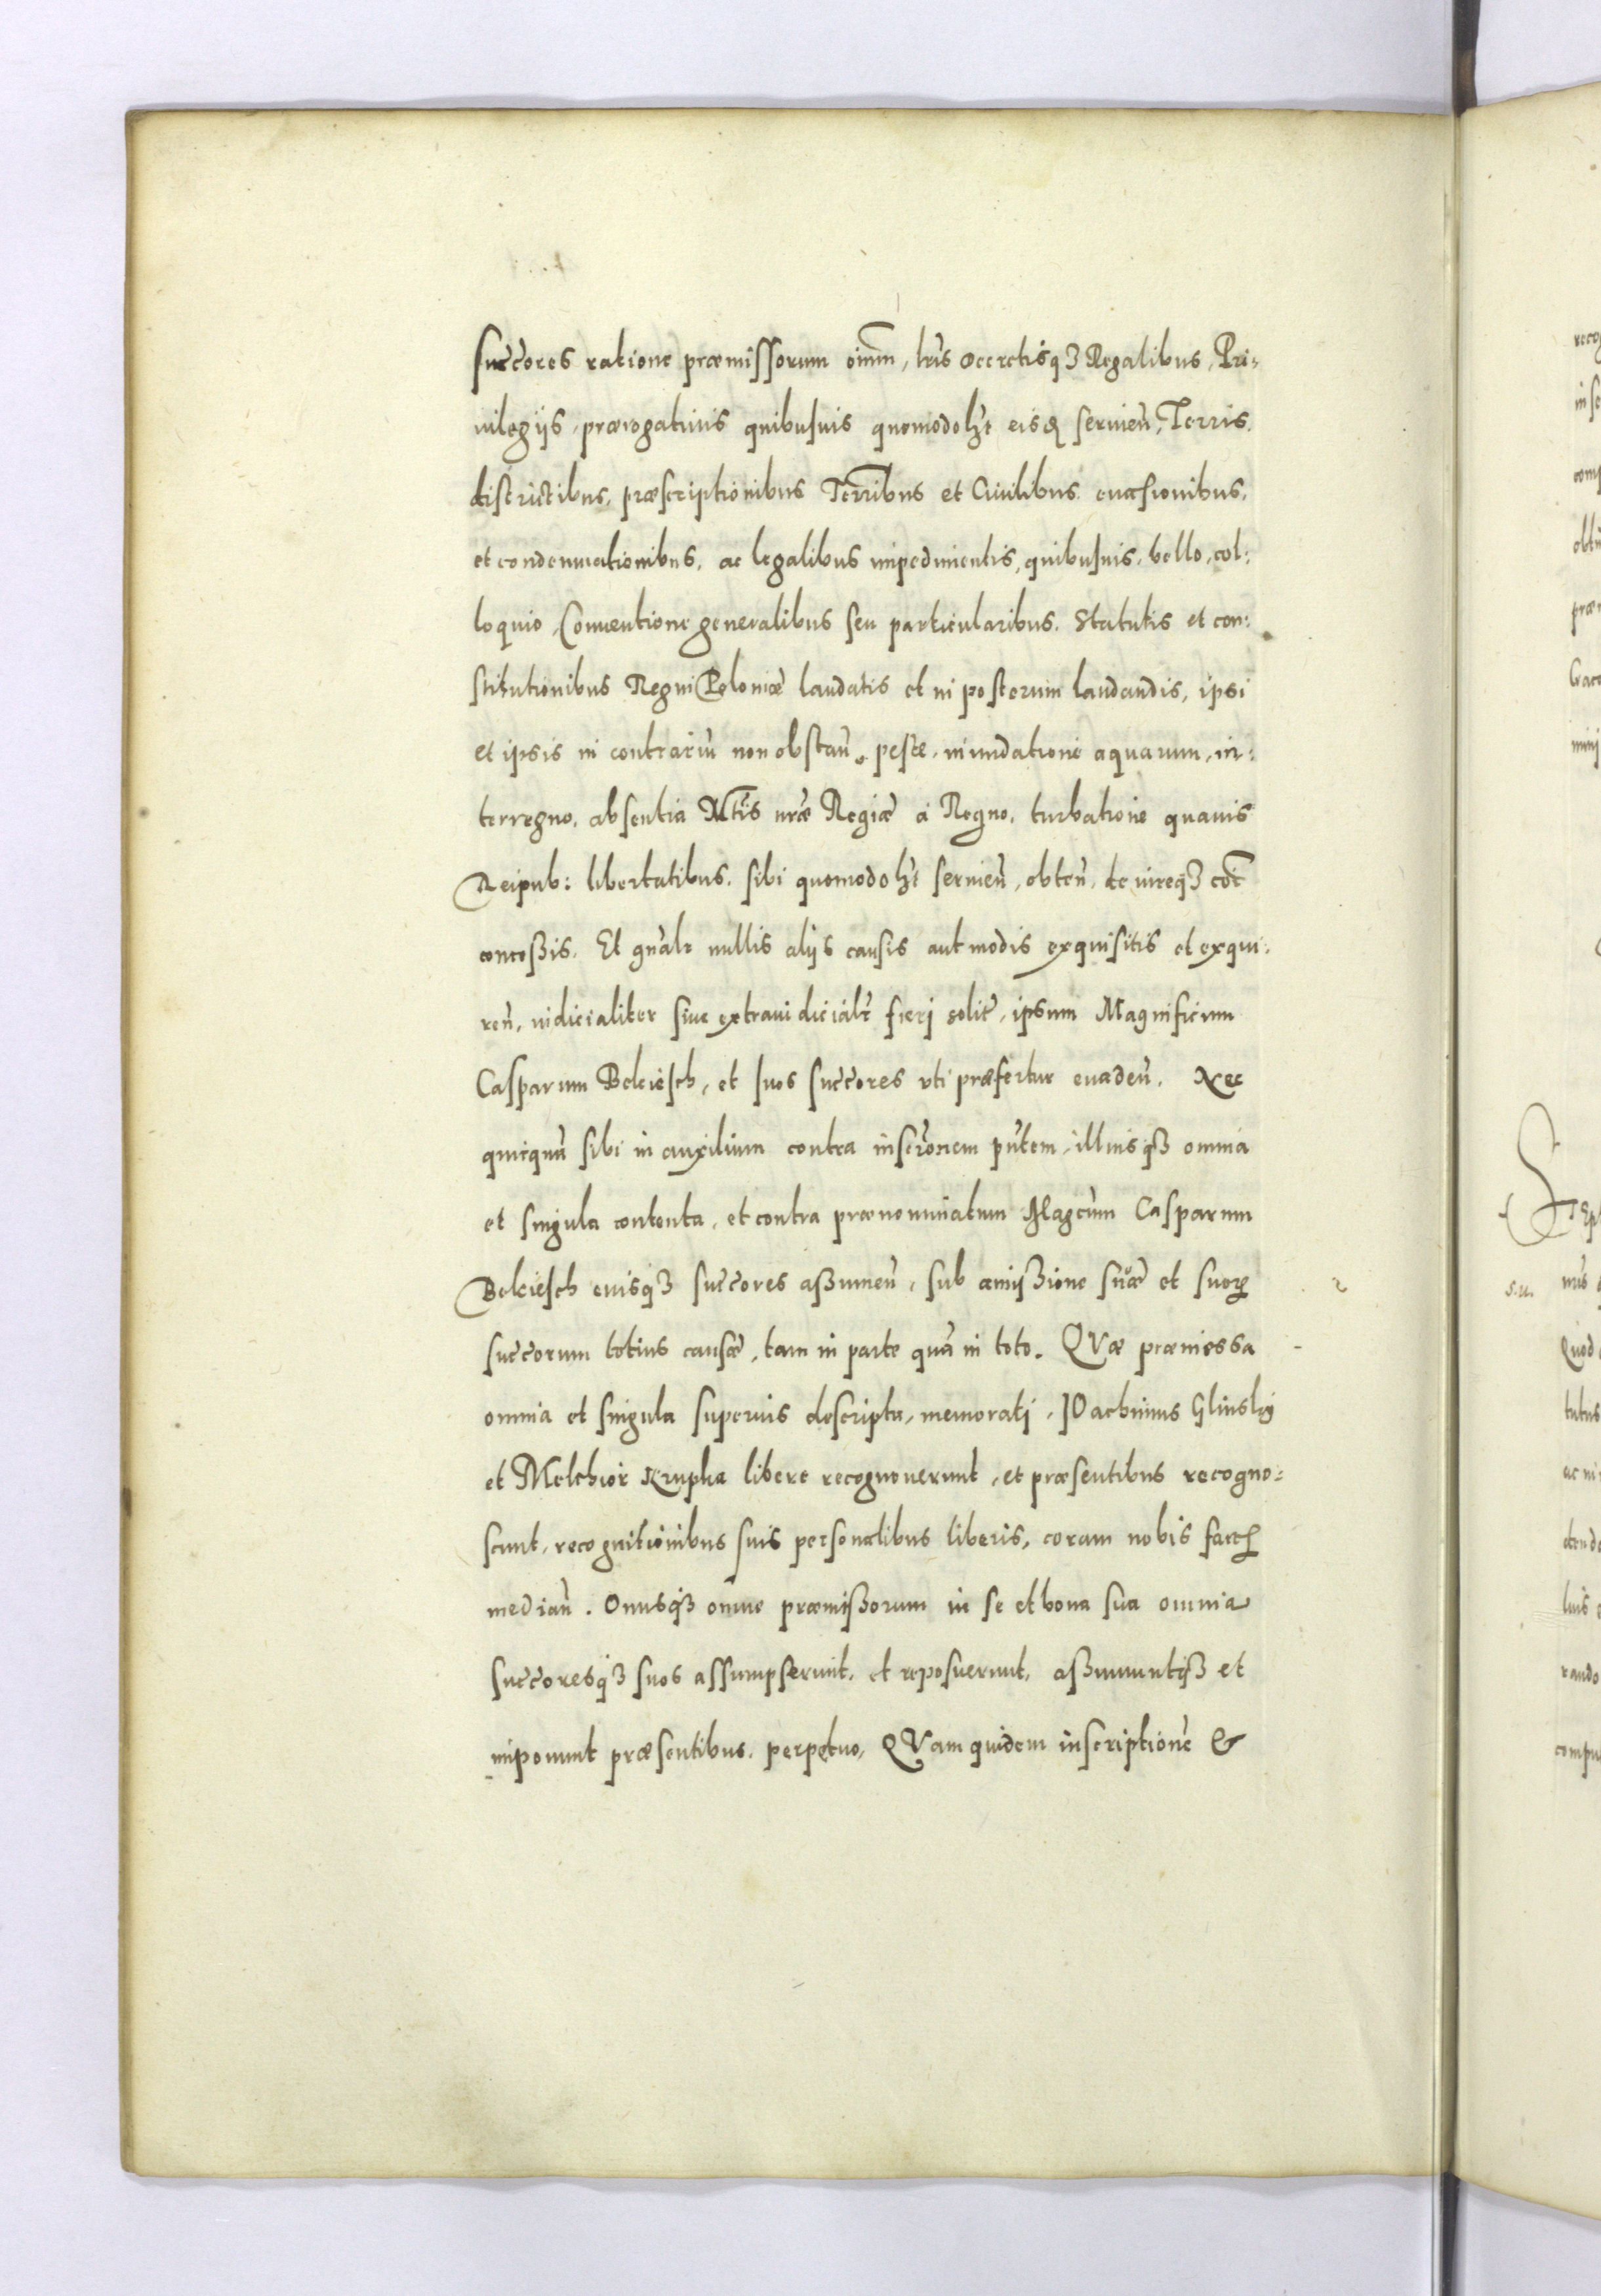 succores ratione præmissorum oim̄, lr̃is decretisqꝫ Regalibus, Pri:
uilegijs, prærogatiuis quibusuis quomodolꝫt eisd seruien̄, Terris,
districtibus, præscriptionibus Terr̃ibus et Ciuilibus, euasionibus,
et condemnationibus, ac legalibus impedimentis, quibusuis, bello, col:
loquio, Conuentione generalibus seu particularibus. Statutis et con:
stitutionibus Regni Poloniæ laudatis et in posterum laudandis, ipsi
et ipsis in contrariũ non obstan̄. peste, inundatione aquarum, in:
terregno, absentia Mtis nr̃æ Regiæ a Regno, turbatione quauis
Reipub: libertatibus, sibi quomodolꝫt seruien̄, obten̄, de iureqꝫ cõi
concoßis. Et gnãlr nullis alijs causis aut modis exquisitis et exqui:
ren̄, iudicialiter siue extraiudicialr̃ fieri solit̃, ipsum Magnificum
Casparum Bekiesch, et suos succores vti præfertur euaden̄. Nec
quicquã sibi in auxilium contra inscr̃onem pñtem, illiusqꝫ omnia
et singula contenta, et contra prænominatum Magcum Casparum
Bekiesch euisqꝫ succores aßumen̄, sub amißione suæ et suorꝝ
succorum totius causæ, tam in parte quã in toto. QVæ præmissa
omnia et singula superius descripta, memorati, JOachimus Glinskij
et Melchior Krupka libere recognouerunt, et præsentibus recogno:
scunt, recognitionibus suis personalibus liberis, coram nobis factꝭ
median̄. Onusqꝫ omne præmißorum in se et bona sua omnia
succoresqꝫ suos assumpserunt, et reposuerunt, aßumuntqꝫ et
imponunt præsentibus, perpetuo, QVam quidem inscriptionẽ &